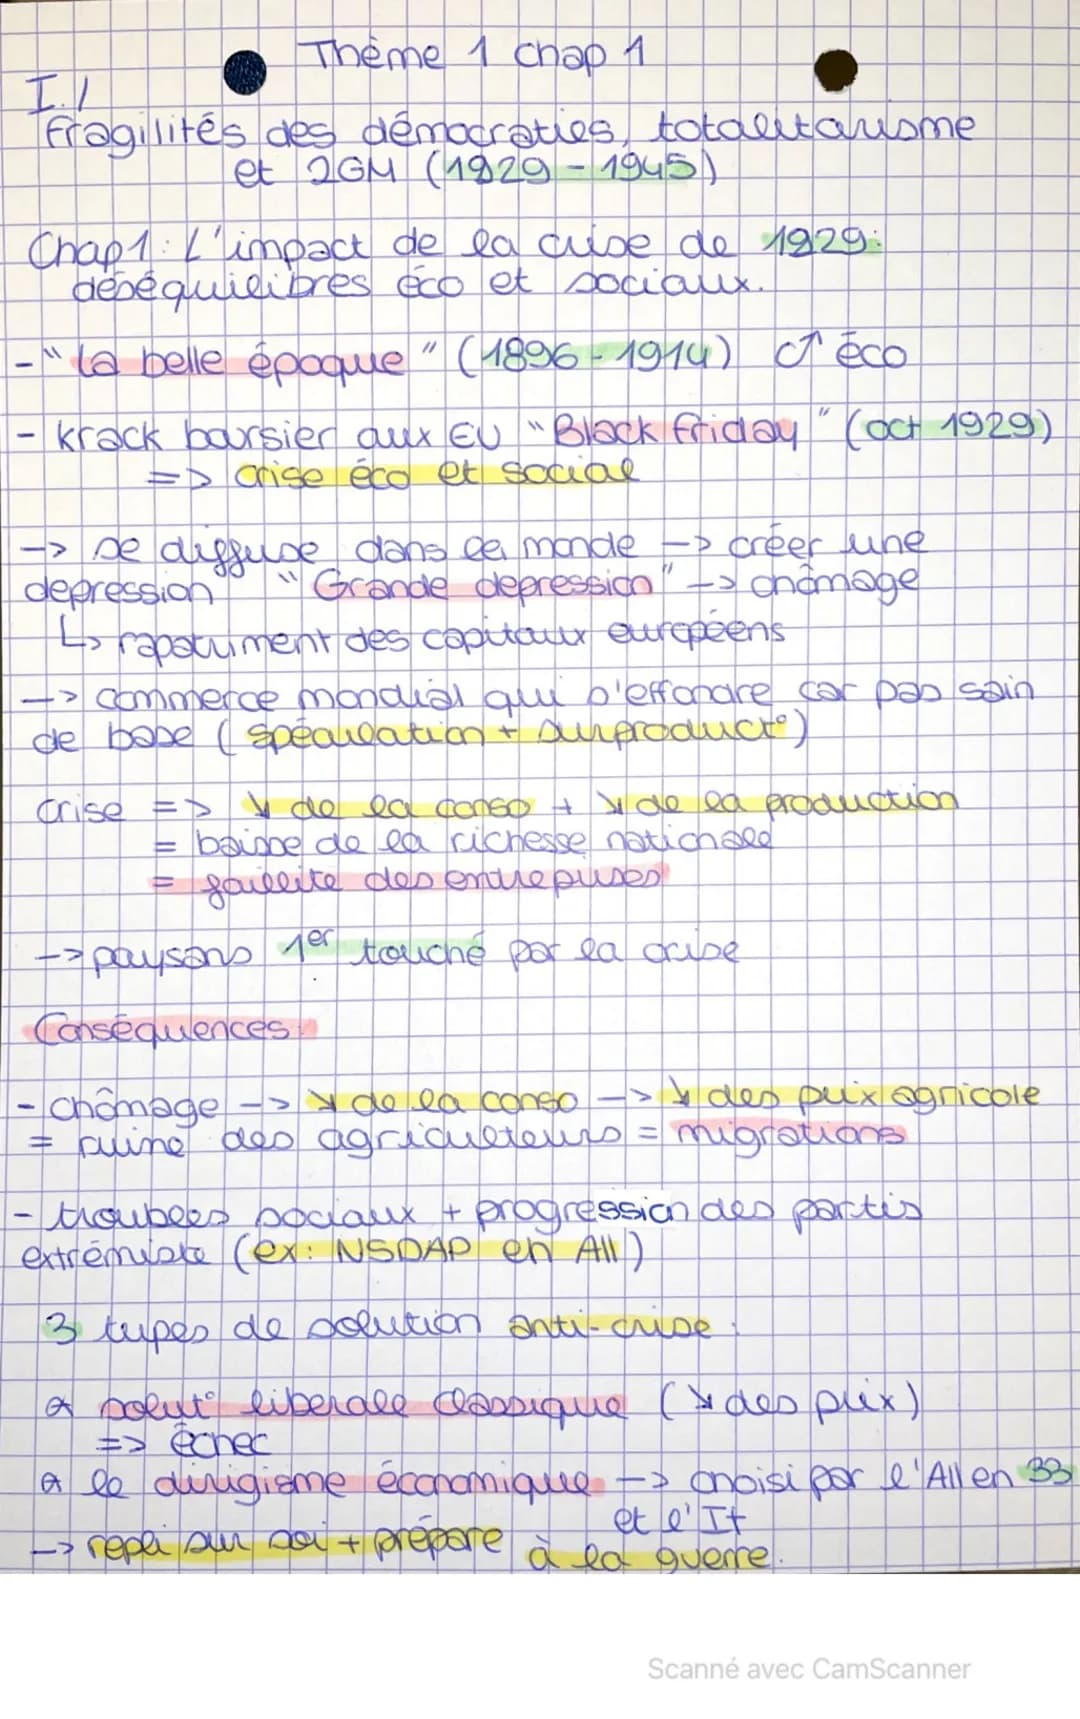 Thème 1 chap 1
I./
Fragilités des démocraties, totalitarisme
et 2GM (1929 - 1945)
Chap1: L'impact de la crise de 1929:
déséquilibres éco et sociaux.
- "la belle époque" (1896 - 1914) ↗ éco
- krack boursier aux EU "Black Friday" (oct 1929)
=> crise éco et social
-> se diffuse dans le monde -> créer une
depression "Grande depression" -> chômage
↳ rapatriment des capitaux européens
-> commerce mondial qui s'effondre car pas sain
de base (spéculation + surproduct°)
crise => ↘ de la conso + ↘ de la production
= baisse de la richesse nationale
= faillite des entreprises
-> paysans 1er touché par la crise
Conséquences:
- chômage -> ↘ de la conso -> ↘ des prix agricole
= ruine des agriculteurs = migrations
- troubles sociaux + progression des partis
extrémiste (ex: NSDAP en All)
3 types de solution anti-crise :
solut° liberale classique (↘ des prix)
=> échec
le dirigisme économique -> choisi par l'All en 33
et l'It
-> repli sur soi + prépare à la guerre.
Scanné avec CamScanner